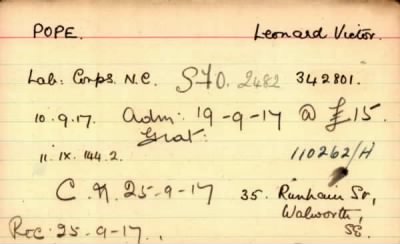 POPE. Leonard Victor.
Lab: Corps. N.C. S70. 2482 342801.
10.9.17. Adm: 19-9-17 @ £15.
Grat:
11. IX. 144.2. 110262/H
C.N. 25-9-17 35. Runham St,
Walworth,
Rec: 25-9-17. SE.